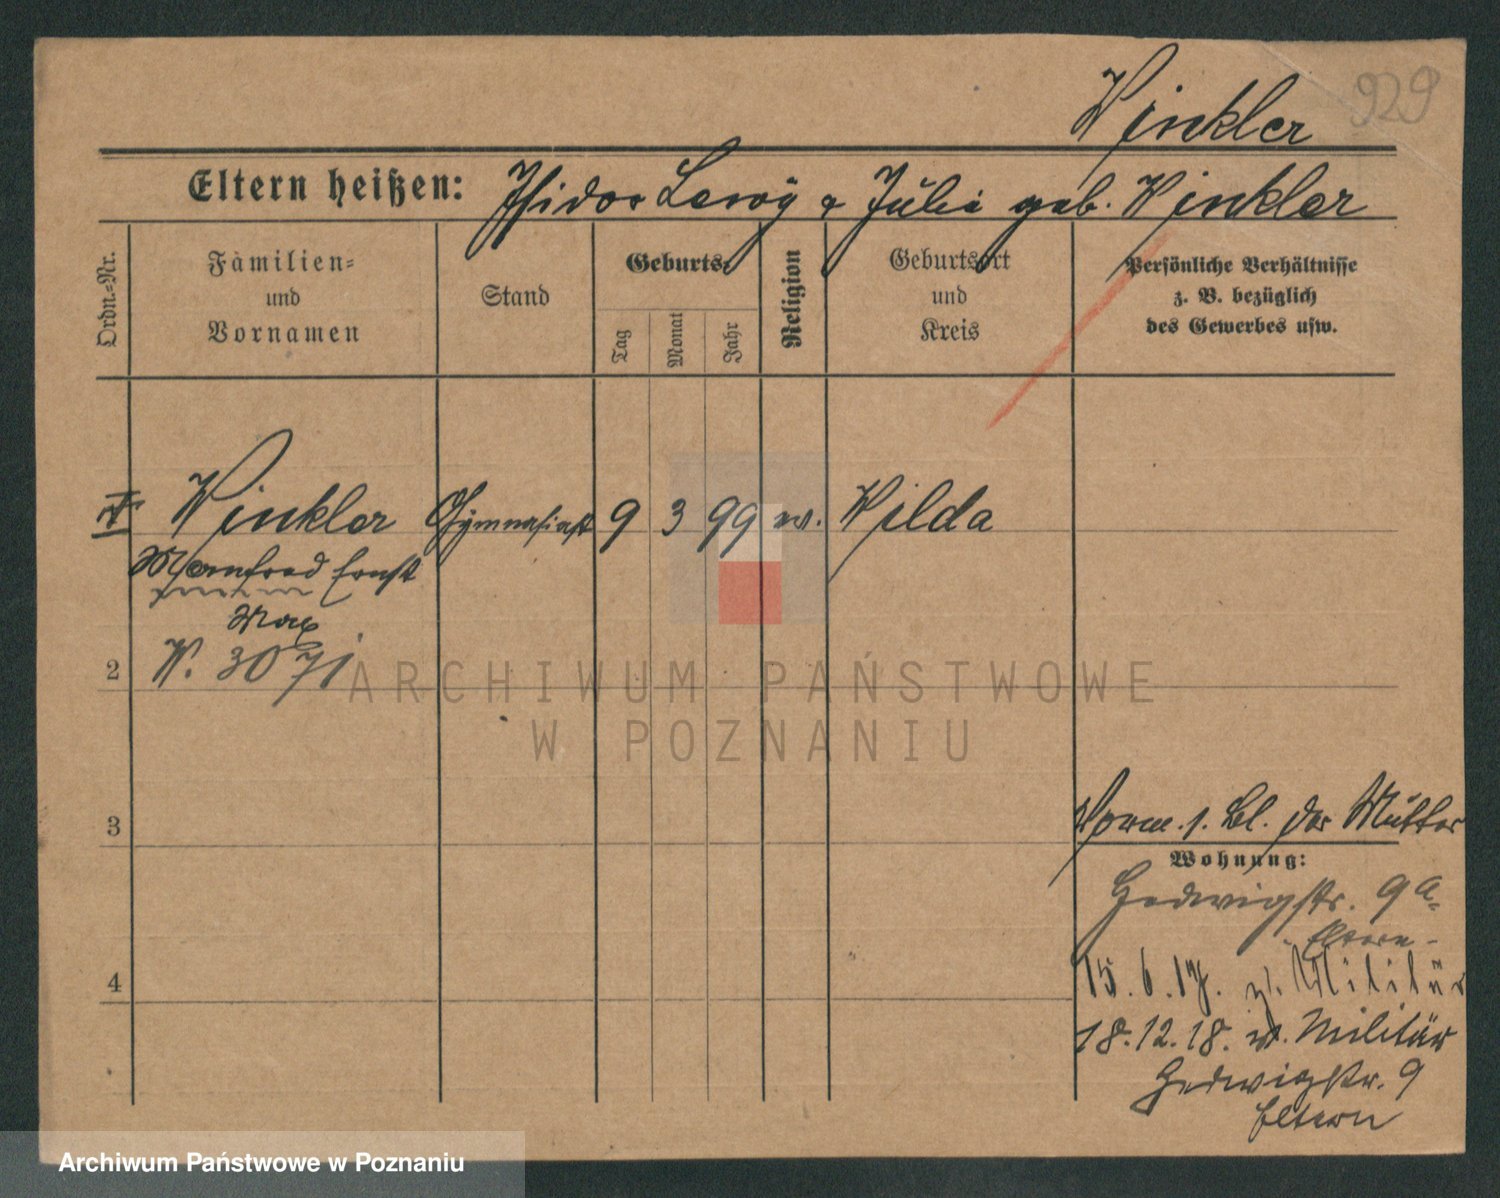 929
Winkler
Eltern heißen: Isidor Lewy & Julie geb. Winkler
Ordn.=Nr.
Familien=
und
Vornamen
Stand
Geburts=
Tag
Monat
Jahr
Religion
Geburtsort
und
Kreis
Persönliche Verhältnisse
z. B. bezüglich
des Gewerbes usw.
Winkler Gymnasiast 9 3 99 Wilda
Manfred Ernst
Max
2 W. 3071
ARCHIWUM PAŃSTWOWE
W POZNANIU
3
1. Bl. der Mutter
Wohnung:
Hedwigstr. 9a
Eltern
4
15.6.17. z. Militär
18.12.18. v. Militär
Hedwigstr. 9
Eltern
Archiwum Państwowe w Poznaniu